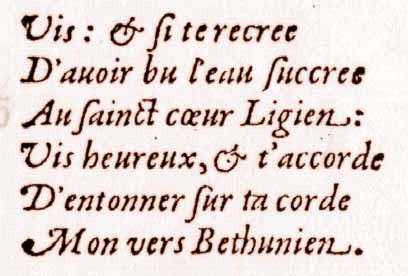 Vis : & ſi te recree
D'auoir bu l'eau ſuccree
Au ſainct cœur Ligien :
Vis heureux, & t'accorde
D'entonner ſur ta corde
Mon vers Bethunien.